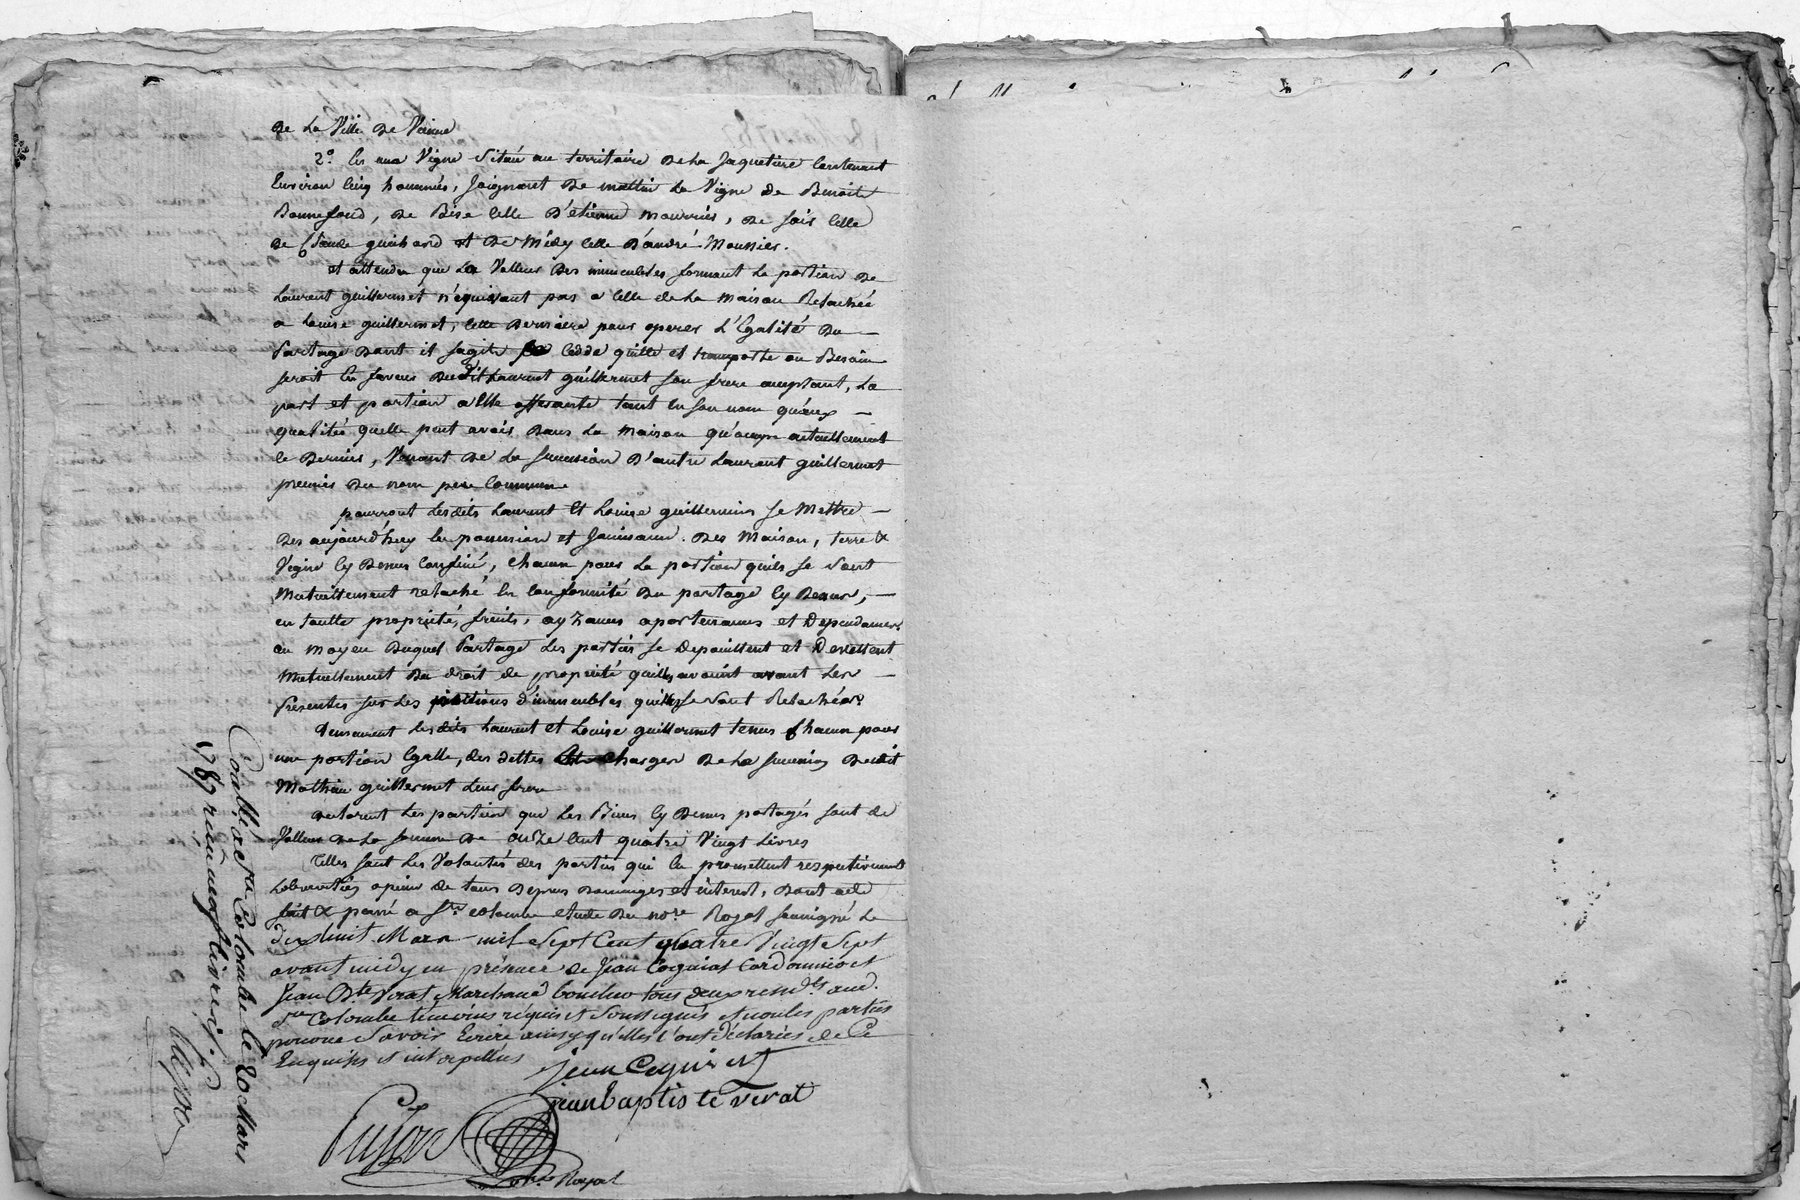 de la Ville de Vienne
2.° En une Vigne Située au territoire de la Jaquetiere Contenant
Environ Cinq hommés, Joignant de mattin la Vigne de Benoit
Bonnefond, de Bise Celle d'étienne mourrier, de soir Celle
de Claude guichard et de Midy Celle d'andré Mounier.
et attendu que la Valleur des immeubles formant la portion de
Laurent guillermet n'équivaut pas a Celle de la maison Relachée
a Louise guillermet, Cette derniere pour operer L'Egalité du
Partage dont il sagit Cedde quitte et transporte au Besoin
seroit En faveur dudit Laurent guillermet son frere acceptant, La
part et portion a Elle afferante tant En son nom qu'aux
qualités quelle peut avoir dans La maison qu'occupe actuellement
le dernier, Venant de La succession d'autre Laurent guillermet
premier du nom pere Commun
pourront lesdits Laurent Et Louise guillermin se Mettre
des aujourd'huy En possession et Jouissance des Maison, terre &
Vigne Cy dessus Confiné, Chacun pour La portion quils se sont
Mutuellement relaché En Conformité du partage Cy dessus,
en toutte proprieté, fruits, ayzances apartenances et Dependances
au moyen duquel Partage Les parties se depouillent et Devettent
Mutuellement du droit de proprieté quelles avoient avant Les
Présentes sur Les portions d'immeubles quelles se sont Relachées
demeurent lesdits Laurent et Louise guillermet tenus Chacun pour
une portion Egalle, des dettes Et Charges de La succession dudit
Mathieu guillermet Leur frere
declarent Les parties que Les Biens Cy dessus partagés sont de
Valleur de La somme de onze Cent quatre Vingt Livres
Telles sont Les Volontés des parties qui En promettent respectivement
L'observation a peine de tous depens dommages et interest, dont acte
fait & passé a Ste. colombe etude du no.re Royal soussigné Le
dix huit Mars mil Sept Cent quatre Vingt Sept
avant midy en présence de Jean Cognat Cordonnier et
Jean Bte Verat Marchand tous deux resid.ts aud.
Ste Colombe temoins réquis et Soussignés et non les parties
pour ne Savoir Ecrire ainsy qu'elles l'ont déclarées de Ce
Enquises et interpellées
jean Cognat
jean baptiste verat
no.re Royal
Contlé a Ste Colombe le 20 Mars
1787 reçu neuf livres